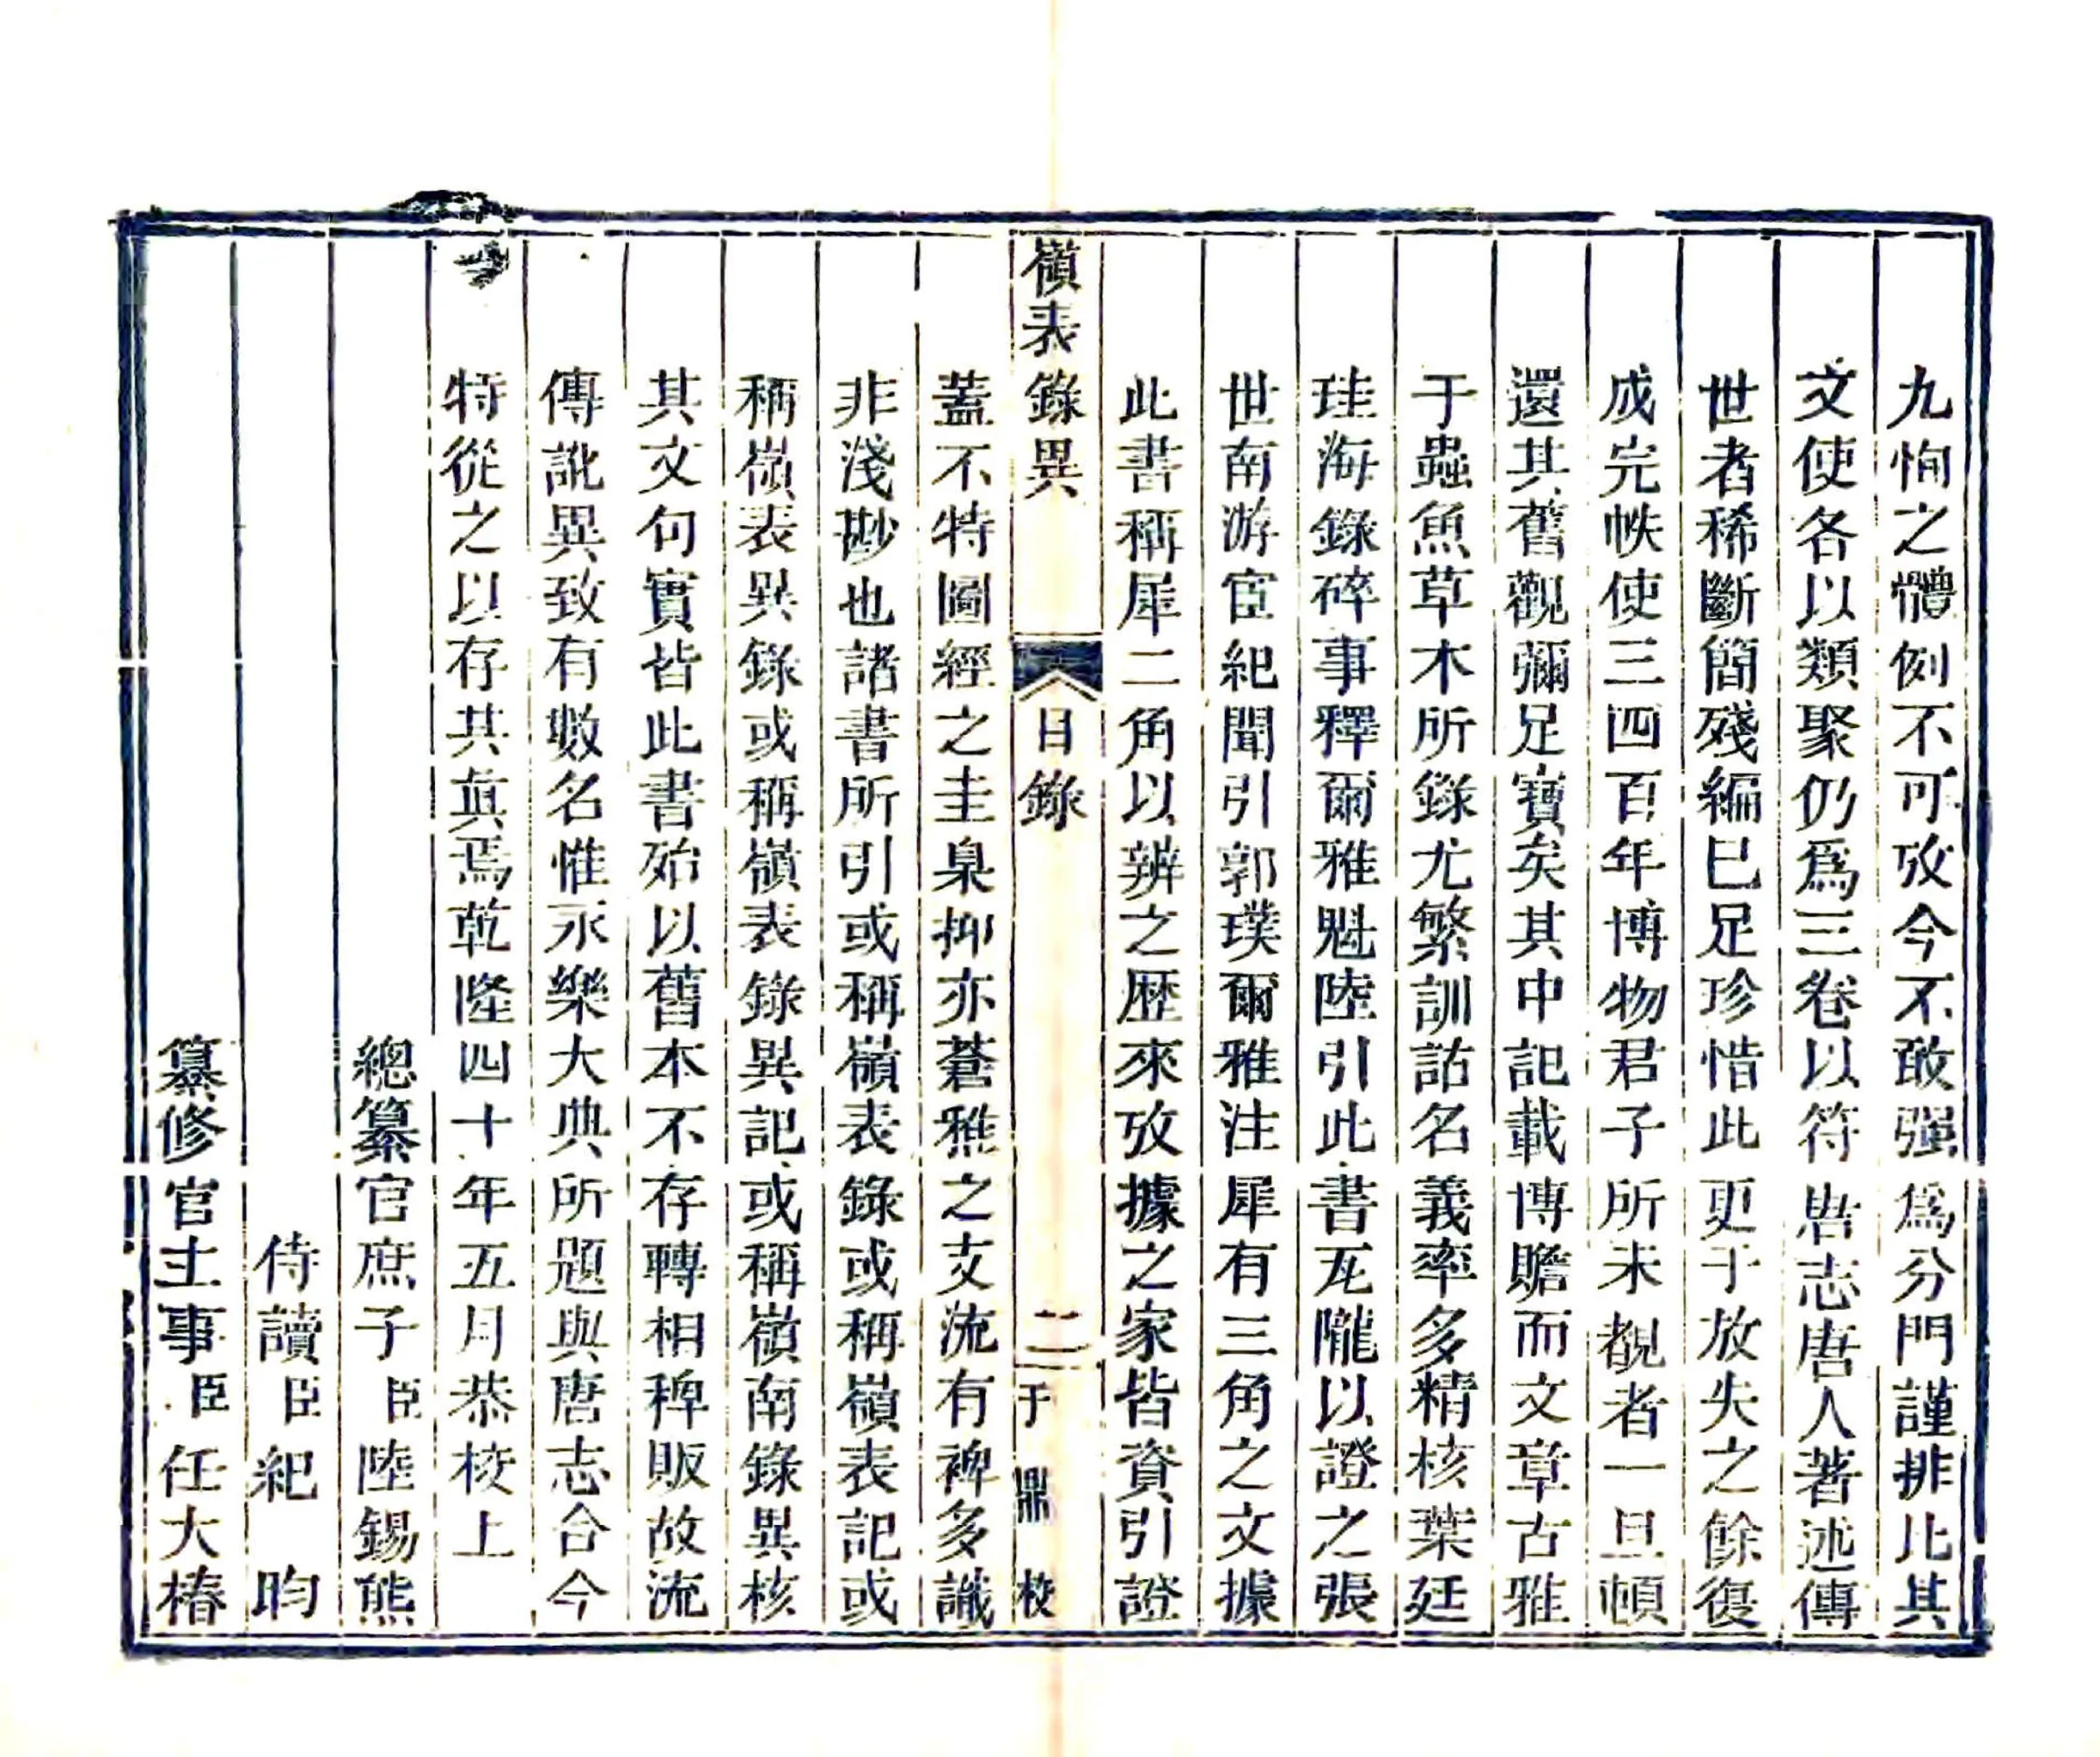 九恂之體例不可攷今不敢强爲分門謹排比其
文使各以類聚仍爲三卷以符唐志唐人著述傳
世者稀斷簡殘編已足珍惜此更于放失之餘復
成完帙使三四百年博物君子所未覩者一旦頓
還其舊觀彌足寶矣其中記載博贍而文章古雅
于蟲魚草木所錄尤繁訓詁名義率多精核葉廷
珪海錄碎事釋爾雅魁陸引此書瓦隴以證之張
世南游宦紀聞引郭璞爾雅注犀有三角之文據
此書稱犀二角以辨之歷來攷據之家皆資引證
嶺表錄異 目錄 二 于鼎校
蓋不特圖經之圭臬抑亦蒼雅之支流有裨多識
非淺尟也諸書所引或稱嶺表錄或稱嶺表記或
稱嶺表異錄或稱嶺表錄異記或稱嶺南錄異核
其文句實皆此書殆以舊本不存轉相稗販故流
傳訛異致有數名惟永樂大典所題與唐志合今
特從之以存其眞焉乾隆四十年五月恭校上
總纂官庶子臣陸錫熊
侍讀臣紀昀
纂修官主事臣任大椿